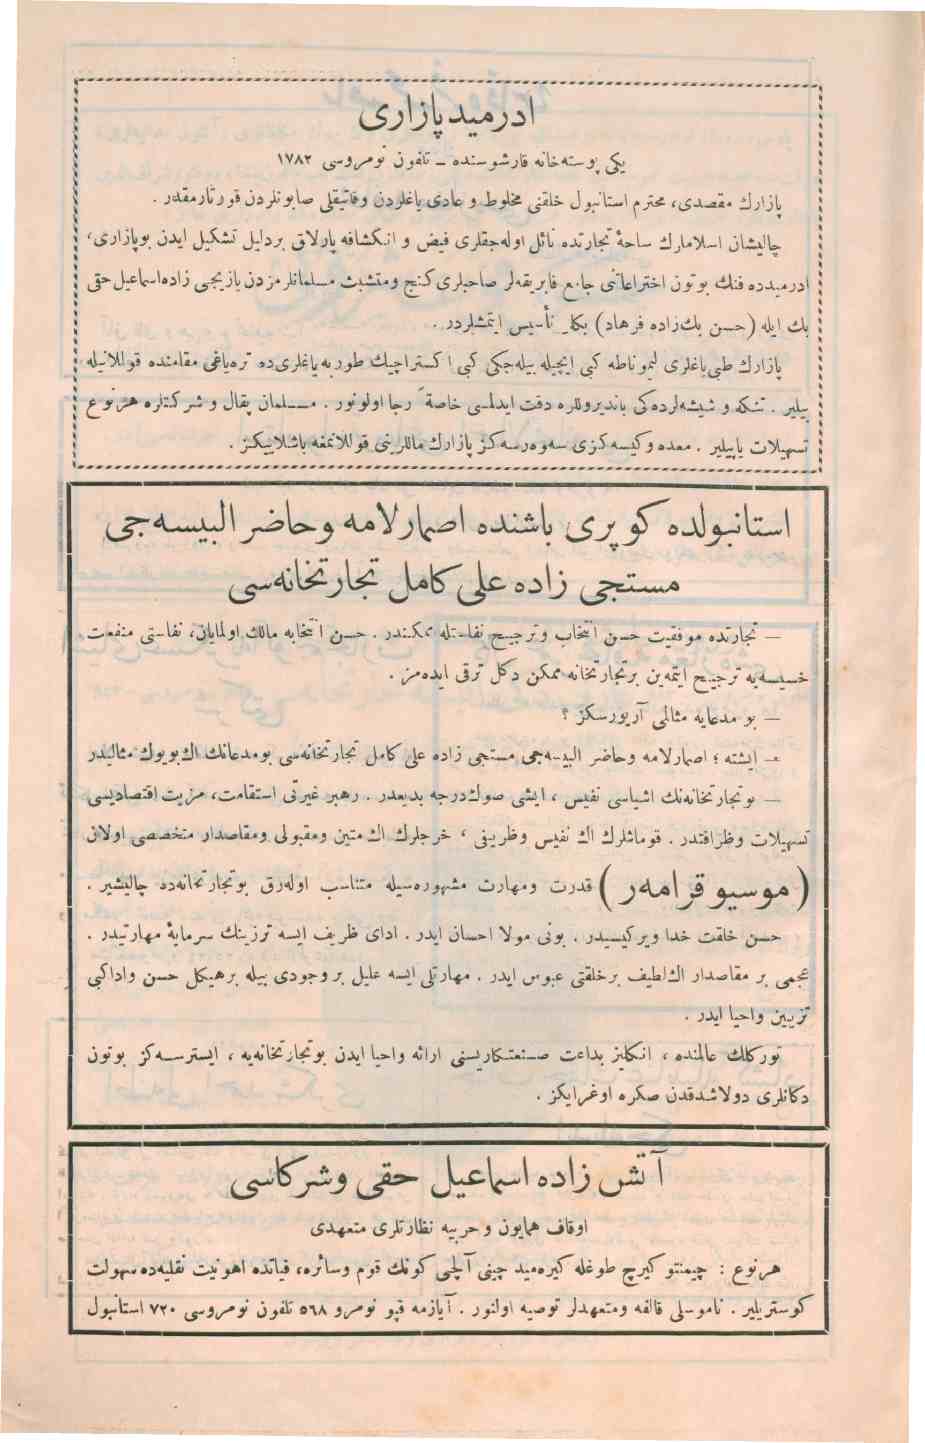 ادرميد پازاری
يكی پوسته‌خانه قارشوسنده ـ تلفون نومروسی ١٧٨٢
پازارك مقصدی، محترم استانبول خلقنی مخلوط و عادی ياغلردن وقاتيقلی صابونلردن قورتارمقدر .
چاليشان اسلامارك ساحهٔ تجارتده نائل اوله‌جقلری فيض و انكشافه پارلاق بردليل تشكيل ايدن بوپازاری،
ادرميدده فنك بوتون اختراعاتنی جامع فابريقه‌لر صاحبلری كنج ومتشبث مسلمانلرمزدن يازيجی زاده‌اسماعيل حقی
بك ايله (حسن بك‌زاده فرهاد) بكلر تأسيس ايتمشلردر .
پازارك طبی ياغلری ليموناطه كبی ايچيله بيله‌جكی كبی اكستراچيك طوربه ياغلری‌ده تره‌ياغی مقامنده قوللانيله
بيلير . تنكه و شيشه‌لرده‌كی باندروللره دقت ايدلمسی خاصةً رجا اولونور . مسلمان بقال و شركتلره هرنوع
تسهيلات ياپيلير . معده وكيسه‌كزی سه‌وه‌رسه‌كز پازارك ماللرينی قوللانمغه باشلاييكز .
استانبولده كوپری باشنده اصمارلامه وحاضر البيسه‌جی
مستجی زاده علی كامل تجارتخانه‌سی
— تجارتده موفقيت حسن انتخاب وترجيح نفاستله ممكندر . حسن انتخابه مالك اولمايان، نفاستی منفعت
خسيسه‌يه ترجيح ايتمه‌ين برتجارتخانه ممكن دكل ترقی ايده‌مز .
— بو مدعايه مثالمی آريورسكز ؟
— ايشته ؛ اصمارلامه وحاضر البيسه‌جی مستجی زاده علی كامل تجارتخانه‌سی بومدعانك اك‌بويوك مثاليدر
— بوتجارتخانه‌نك اشياسی نفيس ، ايشی صوك‌درجه بديعدر . رهبر غيرتی استقامت، مزيت اقتصاديسی
تسهيلات وظرافتدر . قوماشلرك اك نفيس وظريفنی ، خرجلرك اك متين ومقبولی ومقاصدار متخصصی اولان
(موسيو قرامه‌ر) قدرت ومهارت مشهوره‌سيله متناسب اوله‌رق بوتجارتخانه‌ده چاليشير .
حسن خلقت خدا ويركيسيدر . بونی مولا احسان ايدر . ادای ظريف ايسه ترزينك سرمايهٔ مهارتيدر .
عجمی بر مقاصدار اك‌لطيف برخلقتی عبوس ايدر . مهارتلی ايسه عليل بروجودی بيله برهيكل حسن واداكبی
تزيين واحيا ايدر .
توركلك عالمنده ، انكليز بداعت صنعتكاريسنی ارائه واحيا ايدن بوتجارتخانه‌يه ، ايسترسه‌كز بوتون
دكانلری دولاشدقدن صكره اوغرايكز .
آتش زاده اسماعيل حقی وشركاسی
اوقاف همايون و حربيه نظارتلری متعهدی
هرنوع : چيمنتو كيرچ طوغله كيره‌ميد چينی آلچی كونك قوم وسائره، فيأتده اهونيت نقليه‌ده سهولت
كوستريلير . ناموسلی قالفه ومتعهدلر توصيه اولنور . آيازمه قپو نومرو ٥٦٨ تلفون نومروسی ٧٢٠ استانبول